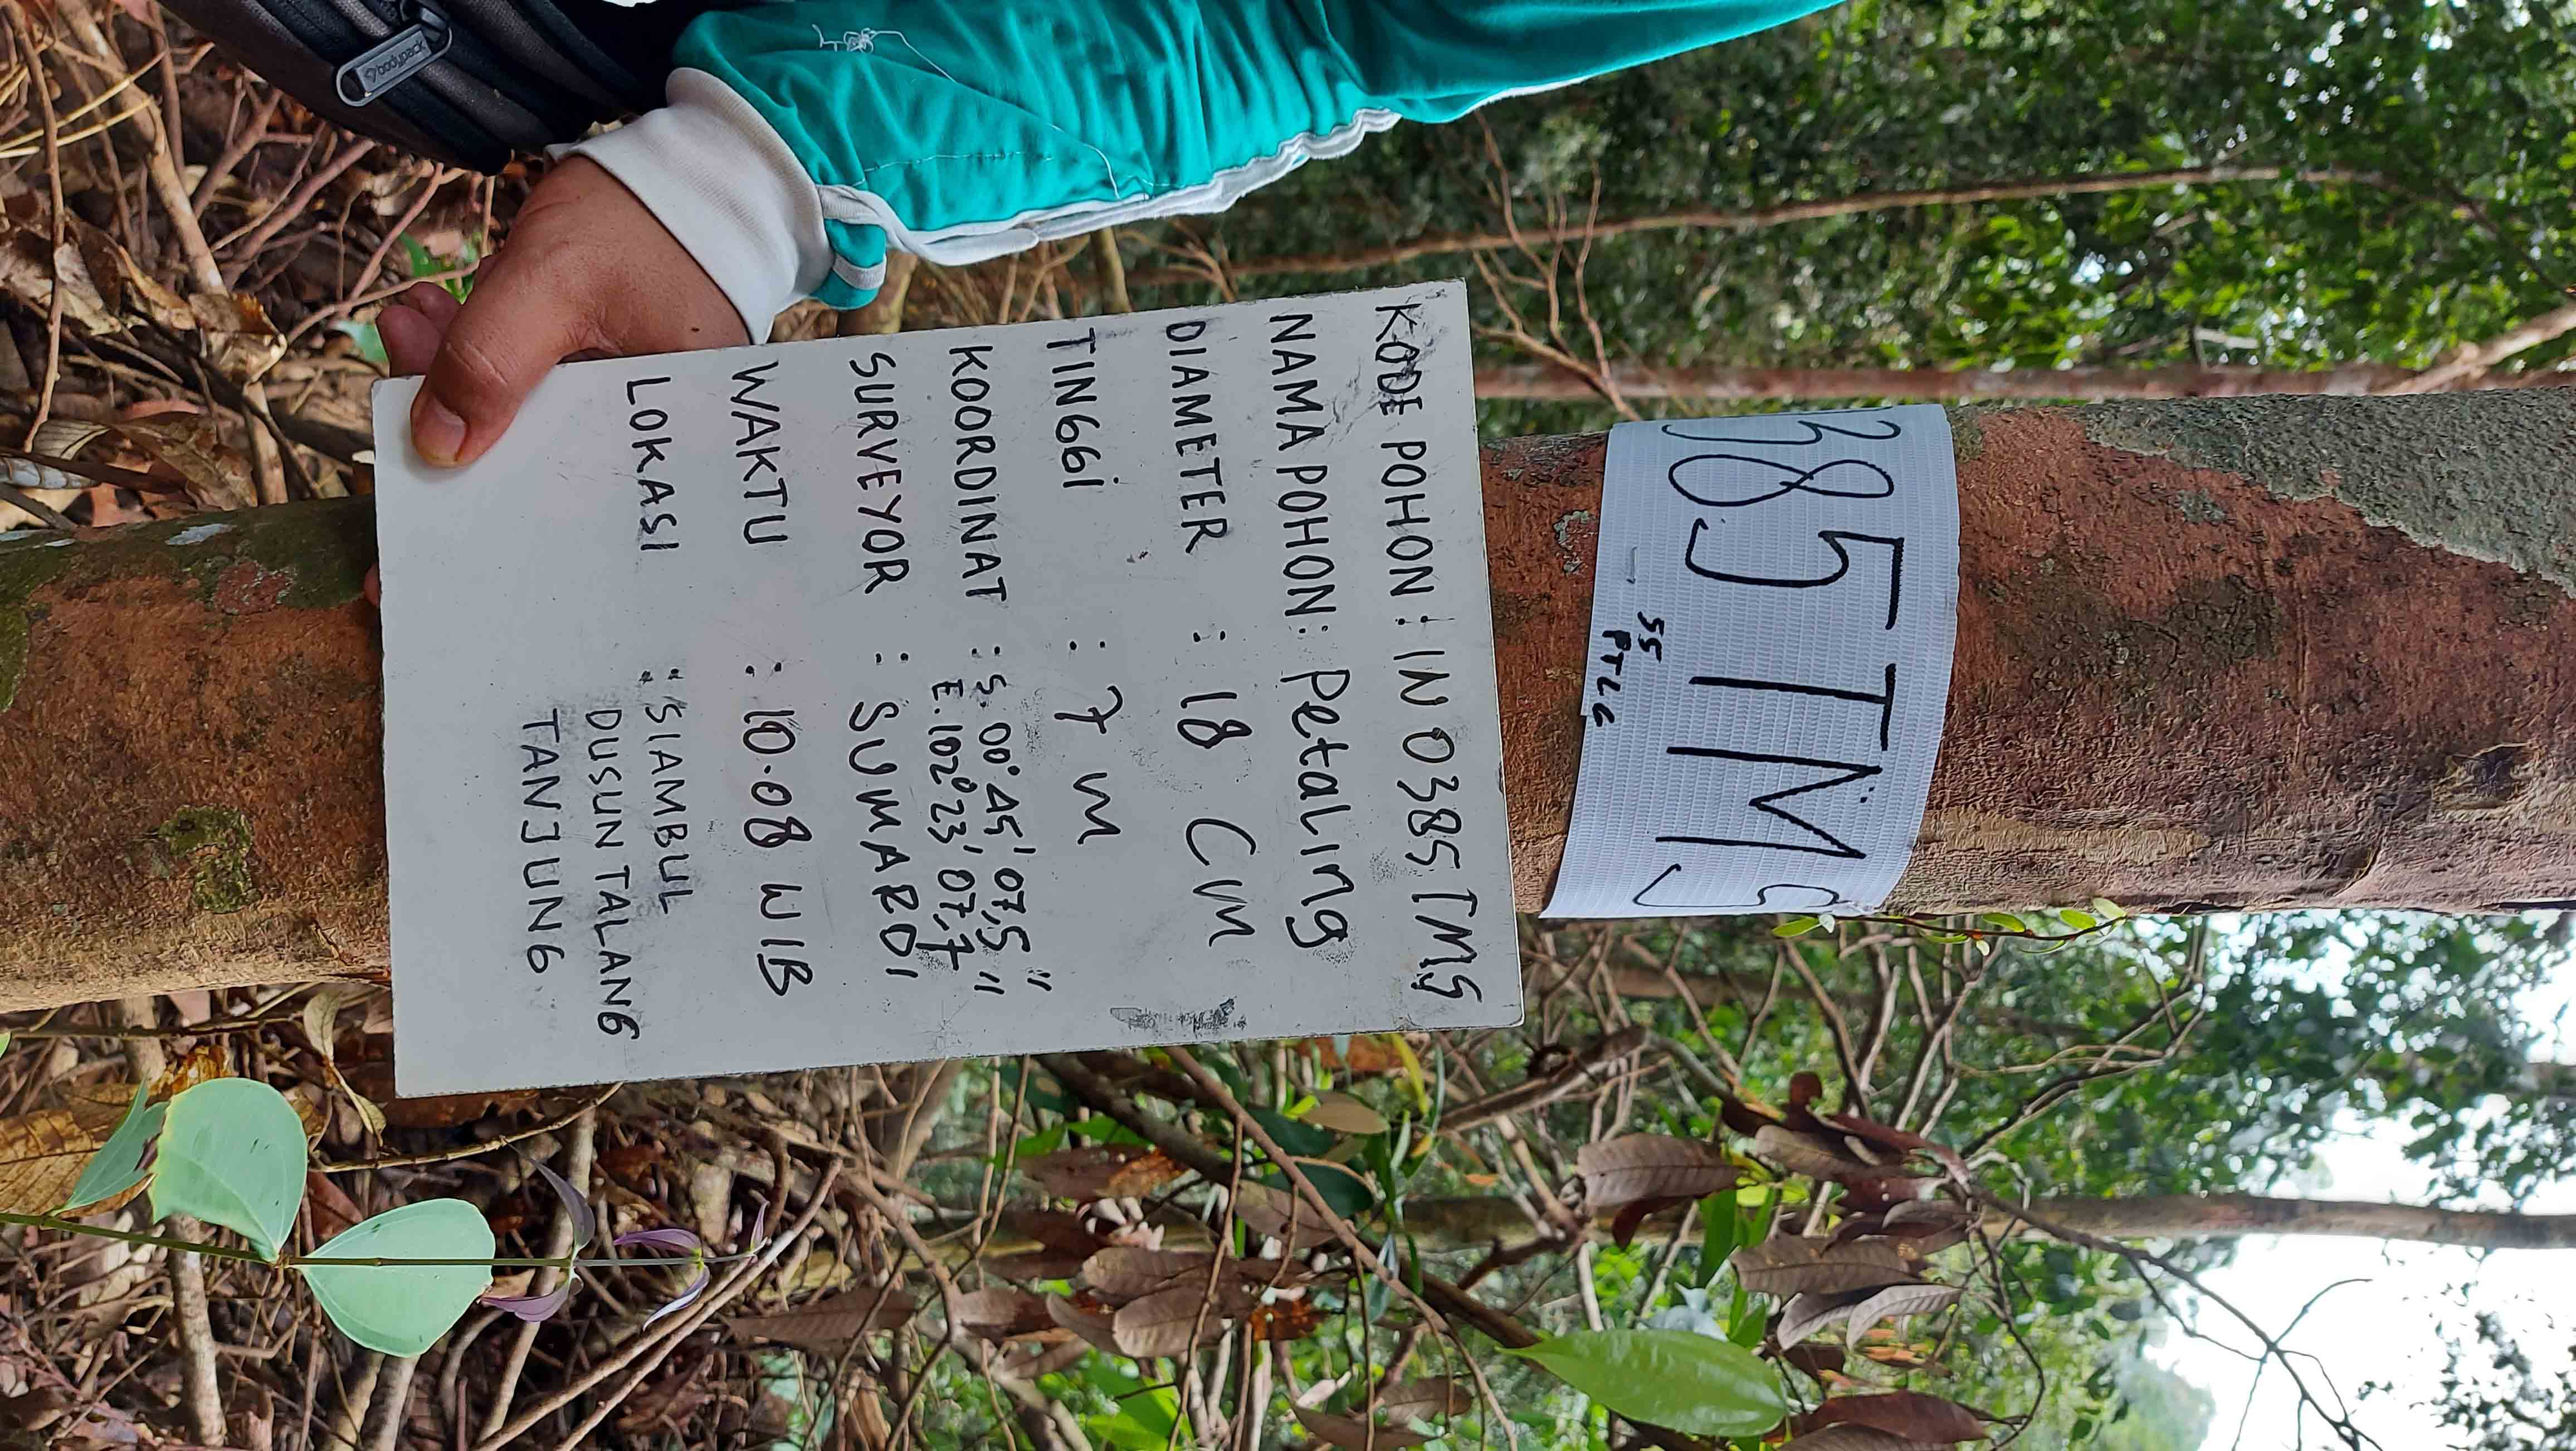 385 TMS
55
PTLG
KODE POHON : IN 0385 TMS
NAMA POHON : Petaling
DIAMETER : 18 CM
TINGGi : 7 M
KOORDINAT : S. 00° 45' 07,5"
E. 102° 23' 07,7"
SURVEYOR : SUMARDI
WAKTU : 10.08 WIB
LOKASI : SIAMBUL
DUSUN TALANG
TANJUNG
bodypack